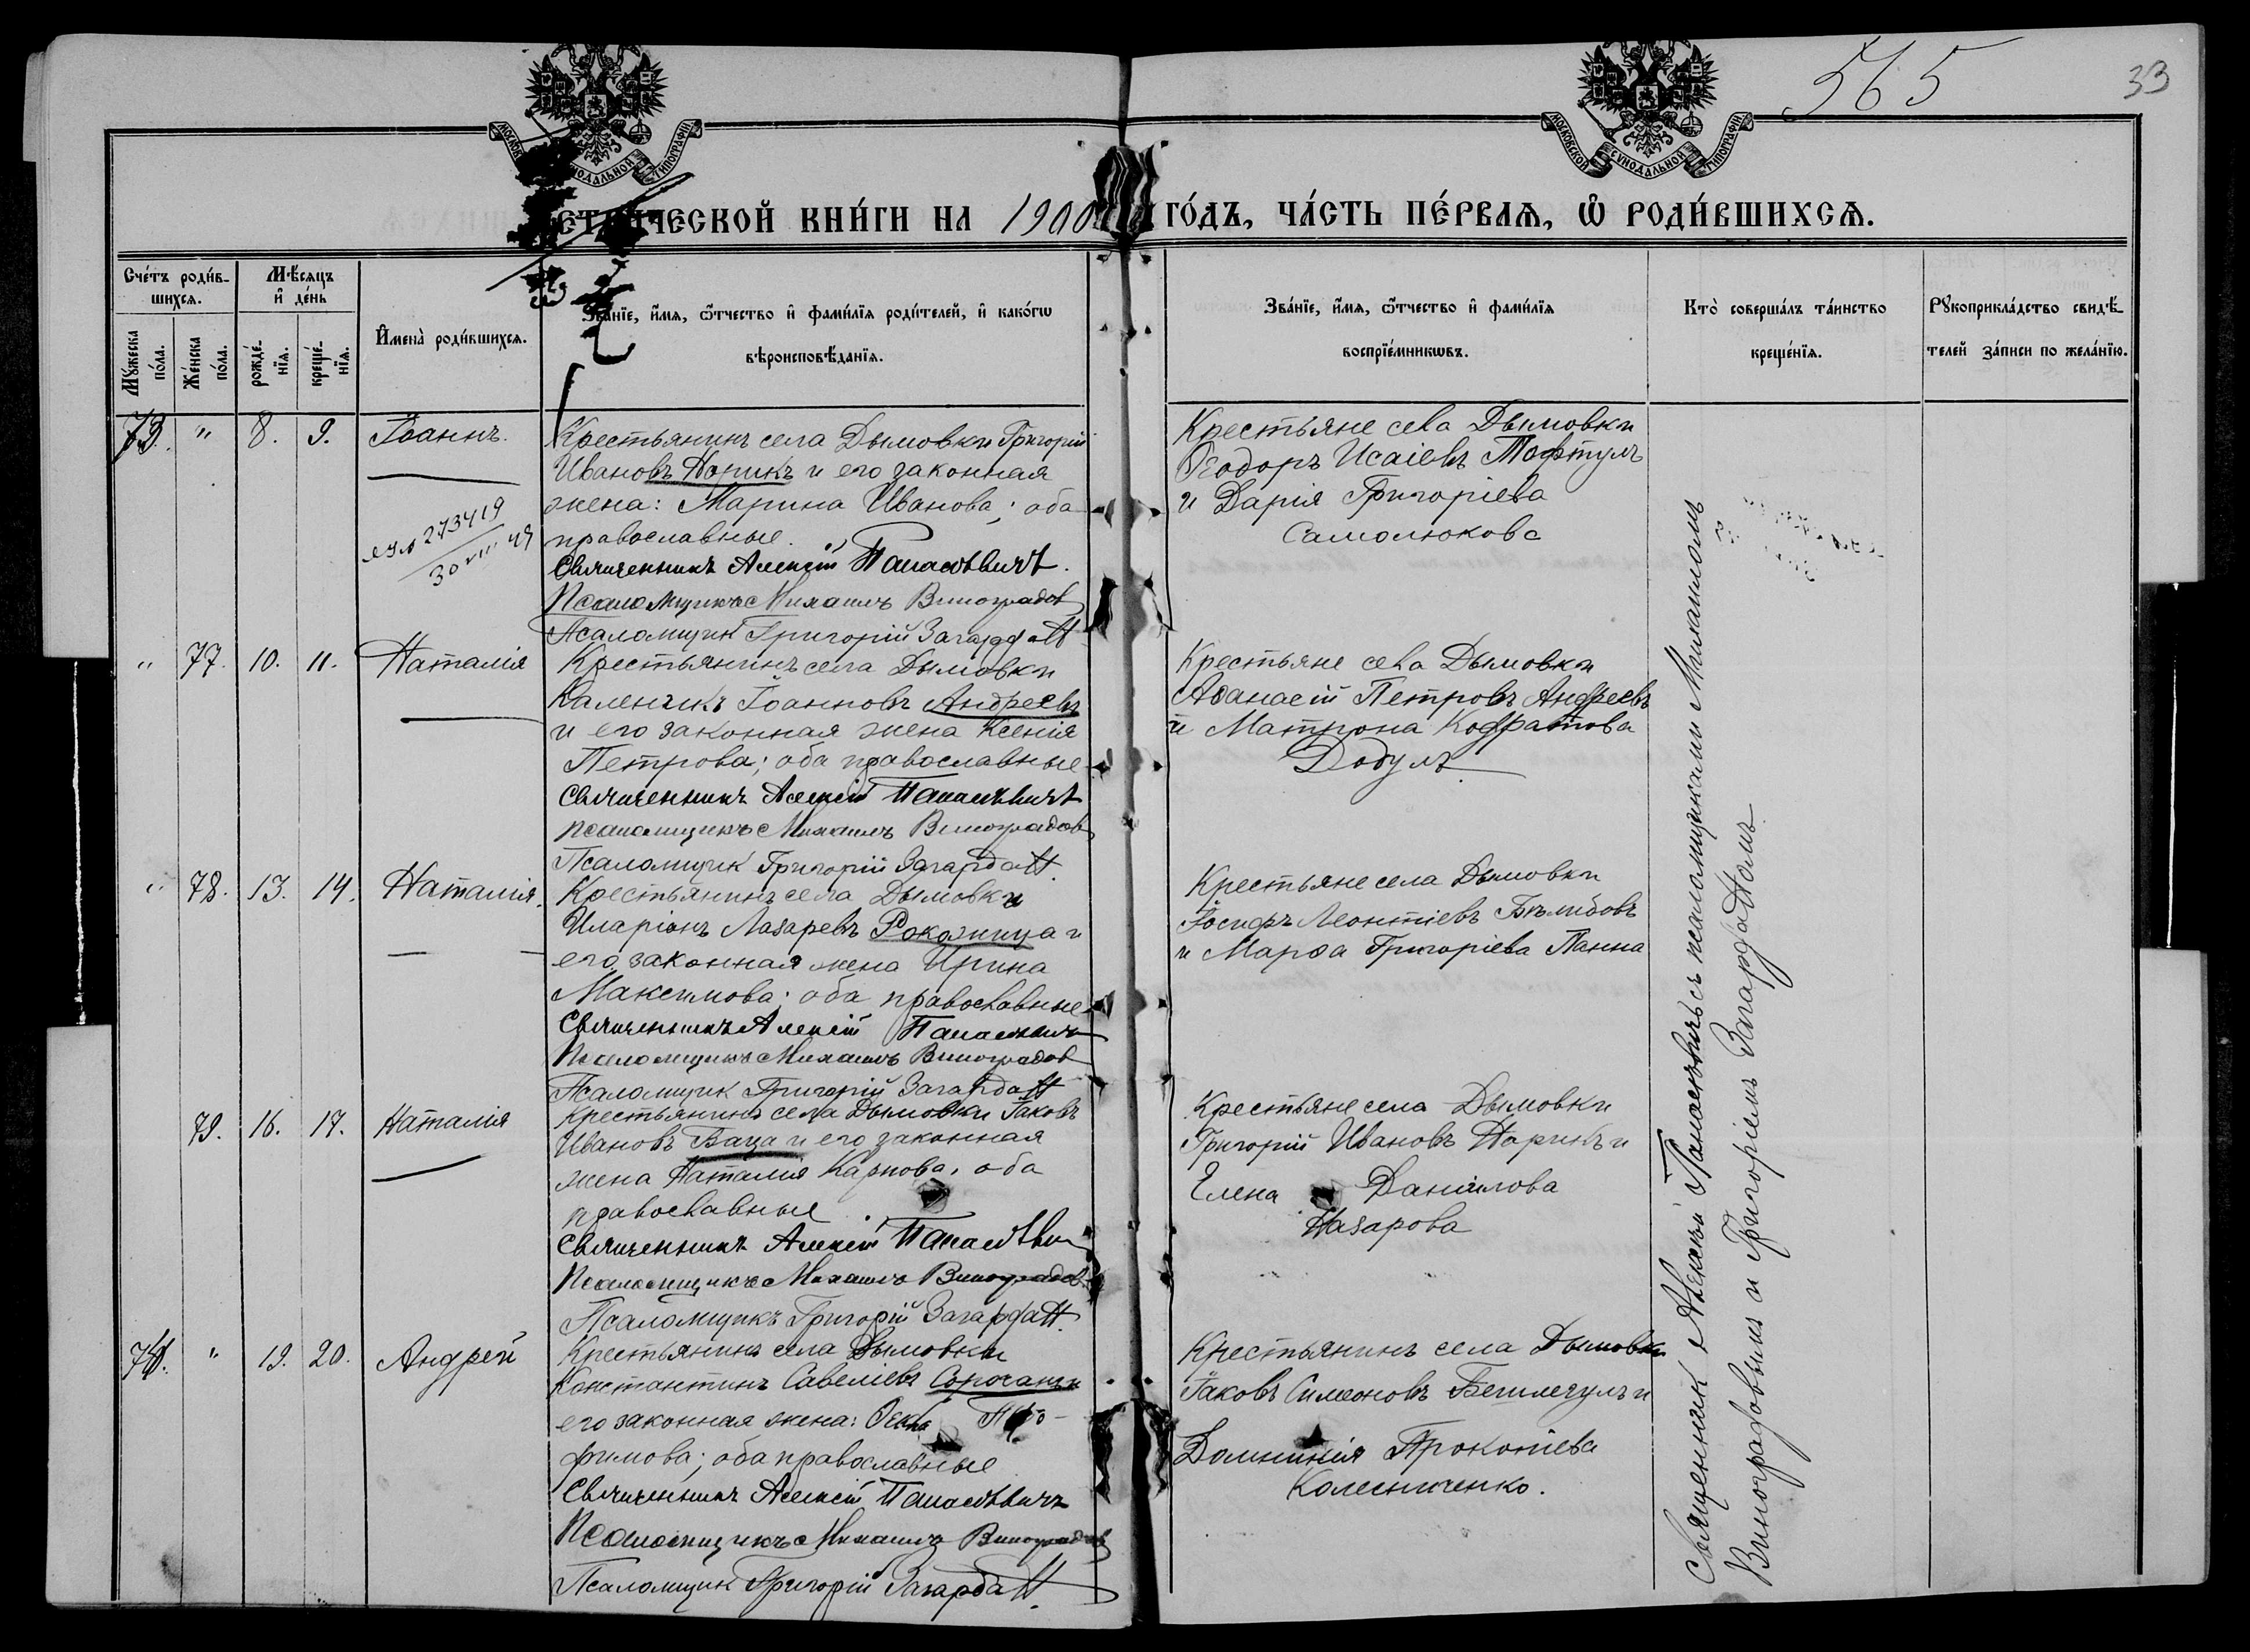 565
33
МОСКОВСКОЙ СѴНОДАЛЬНОЙ ТИПОГРАФІИ
ЕТРИЧЕСКОЙ КНИ́ГИ НА 1900 ГО́ДЪ, ЧА́СТЬ ПЕ́РВАѦ, Ѡ҆ РОДИ́ВШИХСѦ.
Сче́тъ роди́в-
шихсѧ.
Мꙋ́жеска по́ла.
Же́нска по́ла.
Мѣ́сѧцъ
и҆ де́нь
рожде́-
нїѧ.
креще́-
нїѧ.
И҆мена̀ роди́вшихсѧ.
Зва́нїе, и҆́мѧ, ѻ҆́тчество и҆ фами́лїѧ роди́телей, и҆ како́гѡ
вѣроисповѣ́данїѧ.
Зва́нїе, и҆́мѧ, ѻ҆́тчество и҆ фами́лїѧ
воспрїе́мникѡвъ.
Кто̀ соверша́лъ та́инство
креще́нїѧ.
Рꙋкоприкла́дство свидѣ́-
телей за́писи по жела́нїю.
73. " 8. 9. Іоаннъ.
273419
30 VIII 49
Крестьянинъ села Дымовки Григорій
Ивановъ Норикъ и его законная
жена: Марина Иванова; оба
православные.
Священникъ Алексій Панасевичъ.
Псаломщикъ Михаилъ Виноградов
Псаломщик Григорій Загардан
Крестьяне села Дымовки
Ѳеодоръ Исаіевъ Тофтулъ
и Дарія Григоріева
Самолюкова
" 77. 10. 11. Наталія
Крестьянинъ села Дымовки
Каленикъ Іоанновъ Андреевъ
и его законная жена Ксенія
Петрова; оба православные
Священникъ Алексій Панасевичъ
Псаломщикъ Михаилъ Виноградов
Псаломщик Григорій Загардан.
Крестьяне села Дымовки
Аѳанасій Петровъ Андреевъ
и Матрона Кодратова
Додулъ
" 78. 13. 14. Наталія.
Крестьянинъ села Дымовки
Иларіонъ Лазаревъ и
его законная жена Ирина
Максимова; оба православные
Священникъ Алексій Панасевичъ
Псаломщикъ Михаилъ Виноградов
Псаломщик Григорій Загардан
Крестьяне села Дымовки
Іосифъ Леонтіевъ
и Марѳа Григоріева Панна
79. 16. 17. Наталія
Крестьянинъ села Дымовки Іаковъ
Ивановъ Баца и его законная
жена Наталія Карпова, оба
православные
Священникъ Алексій Панасеви
Псаломщикъ Михаилъ Виноградов
Псаломщикъ Григорій Загардан.
Крестьяне села Дымовки
Григорій Ивановъ Норикъ и
Елена Даніилова
Назарова
74. " 19. 20. Андрей
Крестьянинъ села Дымовки
Константинъ Савеліевъ Сорочанъ и
его законная жена: Ѳекла Тро-
фимова; оба православные
Священникъ Алексій Панасевичъ
Псаломщикъ Михаилъ Виноградов
Псаломщик Григорій Загардан.
Крестьянинъ села Дымовки
Іаковъ Симеоновъ Бешлегулъ и
Домникія Прокопіева
Колесниченко.
Священник Алексѣй Панасевичъ съ псаломщиками Михаиломъ
Виноградовымъ и Григоріемъ Загарданомъ